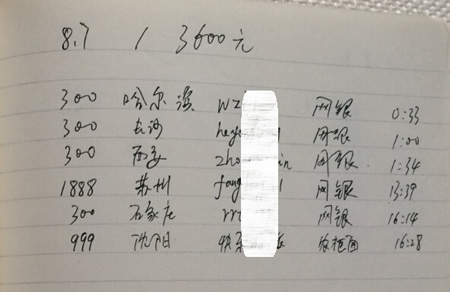 8.7 / 3600元
300 哈尔滨 wz 网银 0:33
300 长沙 网银 1:00
300 西安 zho in 网银 1:34
1888 苏州 fang 网银 13:39
300 石家庄 网银 16:14
999 沈阳 16:28